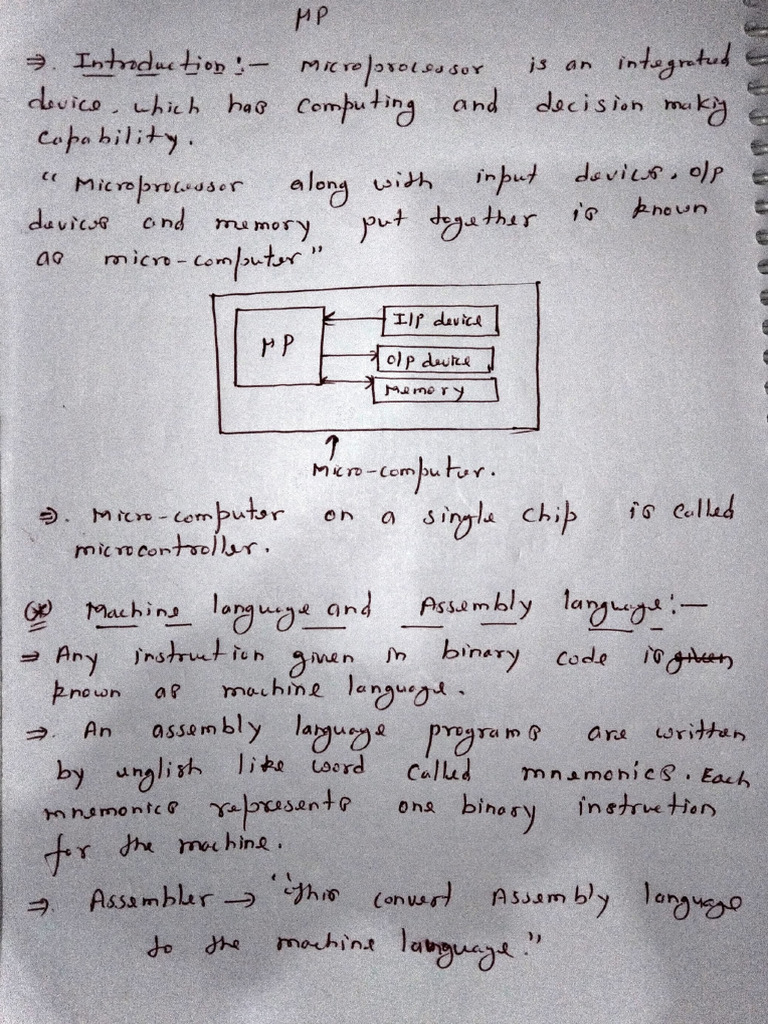 μP
⇒. Introduction:- Microprocessor is an integrated
device, which has computing and decision making
capability.
"Microprocessor along with input devices, O/P
devices and memory put together is known
as micro-computer"
μP
I/P device
O/P device
Memory
↑
Micro-computer.
⇒. Micro-computer on a single chip is called
microcontroller.
(*) Machine language and Assembly language:-
⇒ Any instruction given in binary code is given
known as machine language.
⇒. An assembly language programs are written
by english like word called mnemonics. Each
mnemonics represents one binary instruction
for the machine.
⇒. Assembler → "This convert Assembly language
to the machine language."